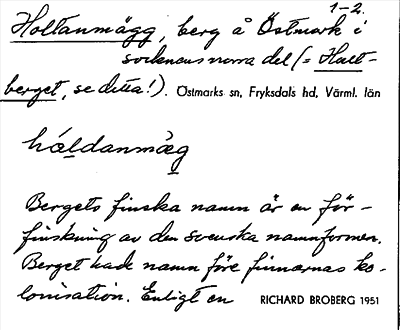 1-2.
Holtanmägg, berg å Östmark i
socknens norra del (= Hult-
berget, se detta!). Östmarks sn, Fryksdals hd, Värml. län
háldanmæg
Bergets finska namn är en för-
finskning av den svenska namnformen.
Berget hade namn före finnarnas ko-
lonisation. Enligt en RICHARD BROBERG 1951